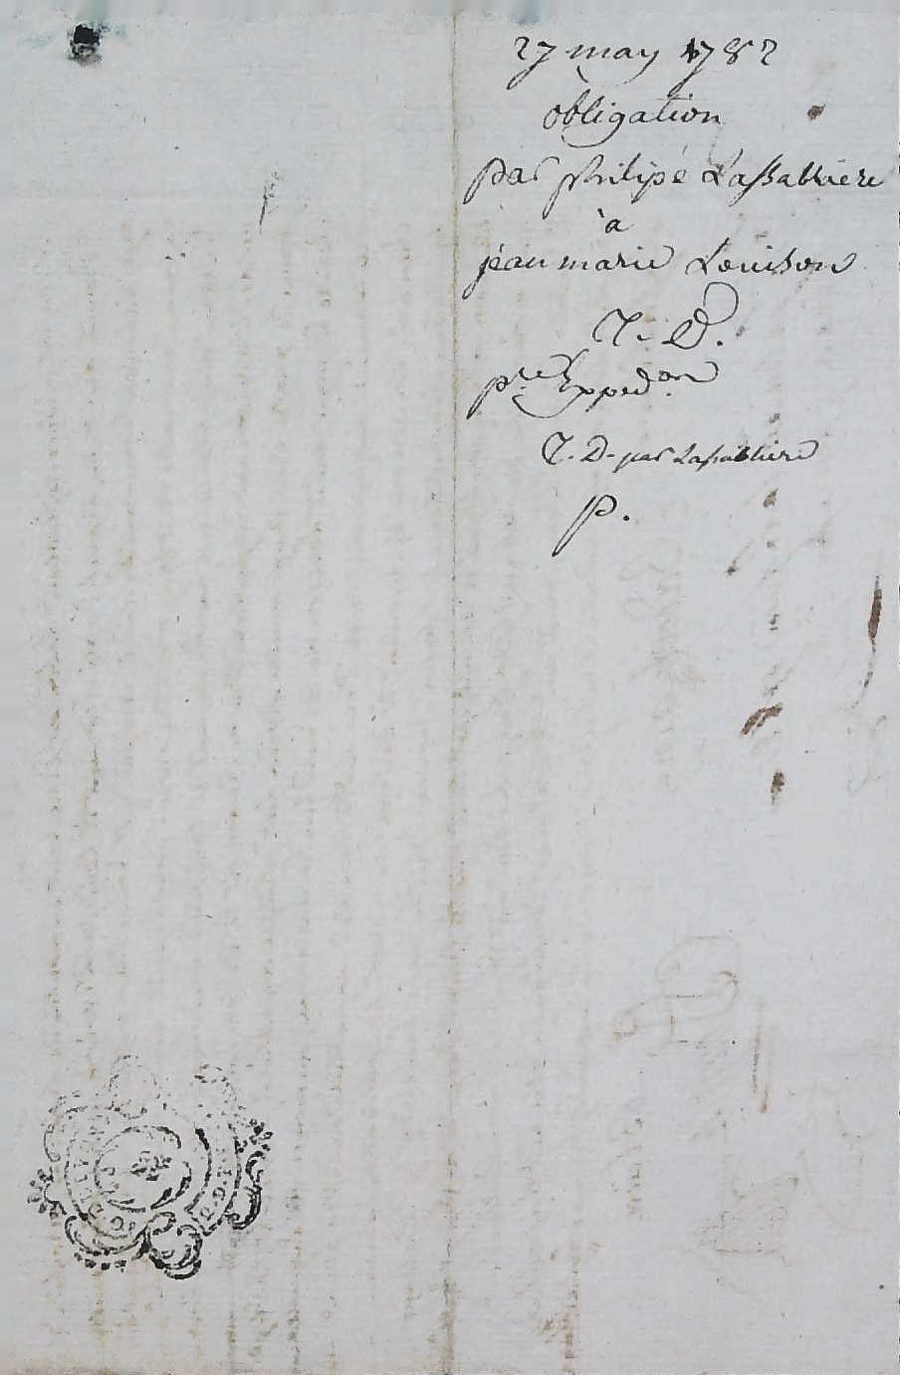 27 may 1782
obligation
par philipe Lassabliere
à
jean marie Louison
T. D.
pre Expedon
T. D. par Lassabliere
P.